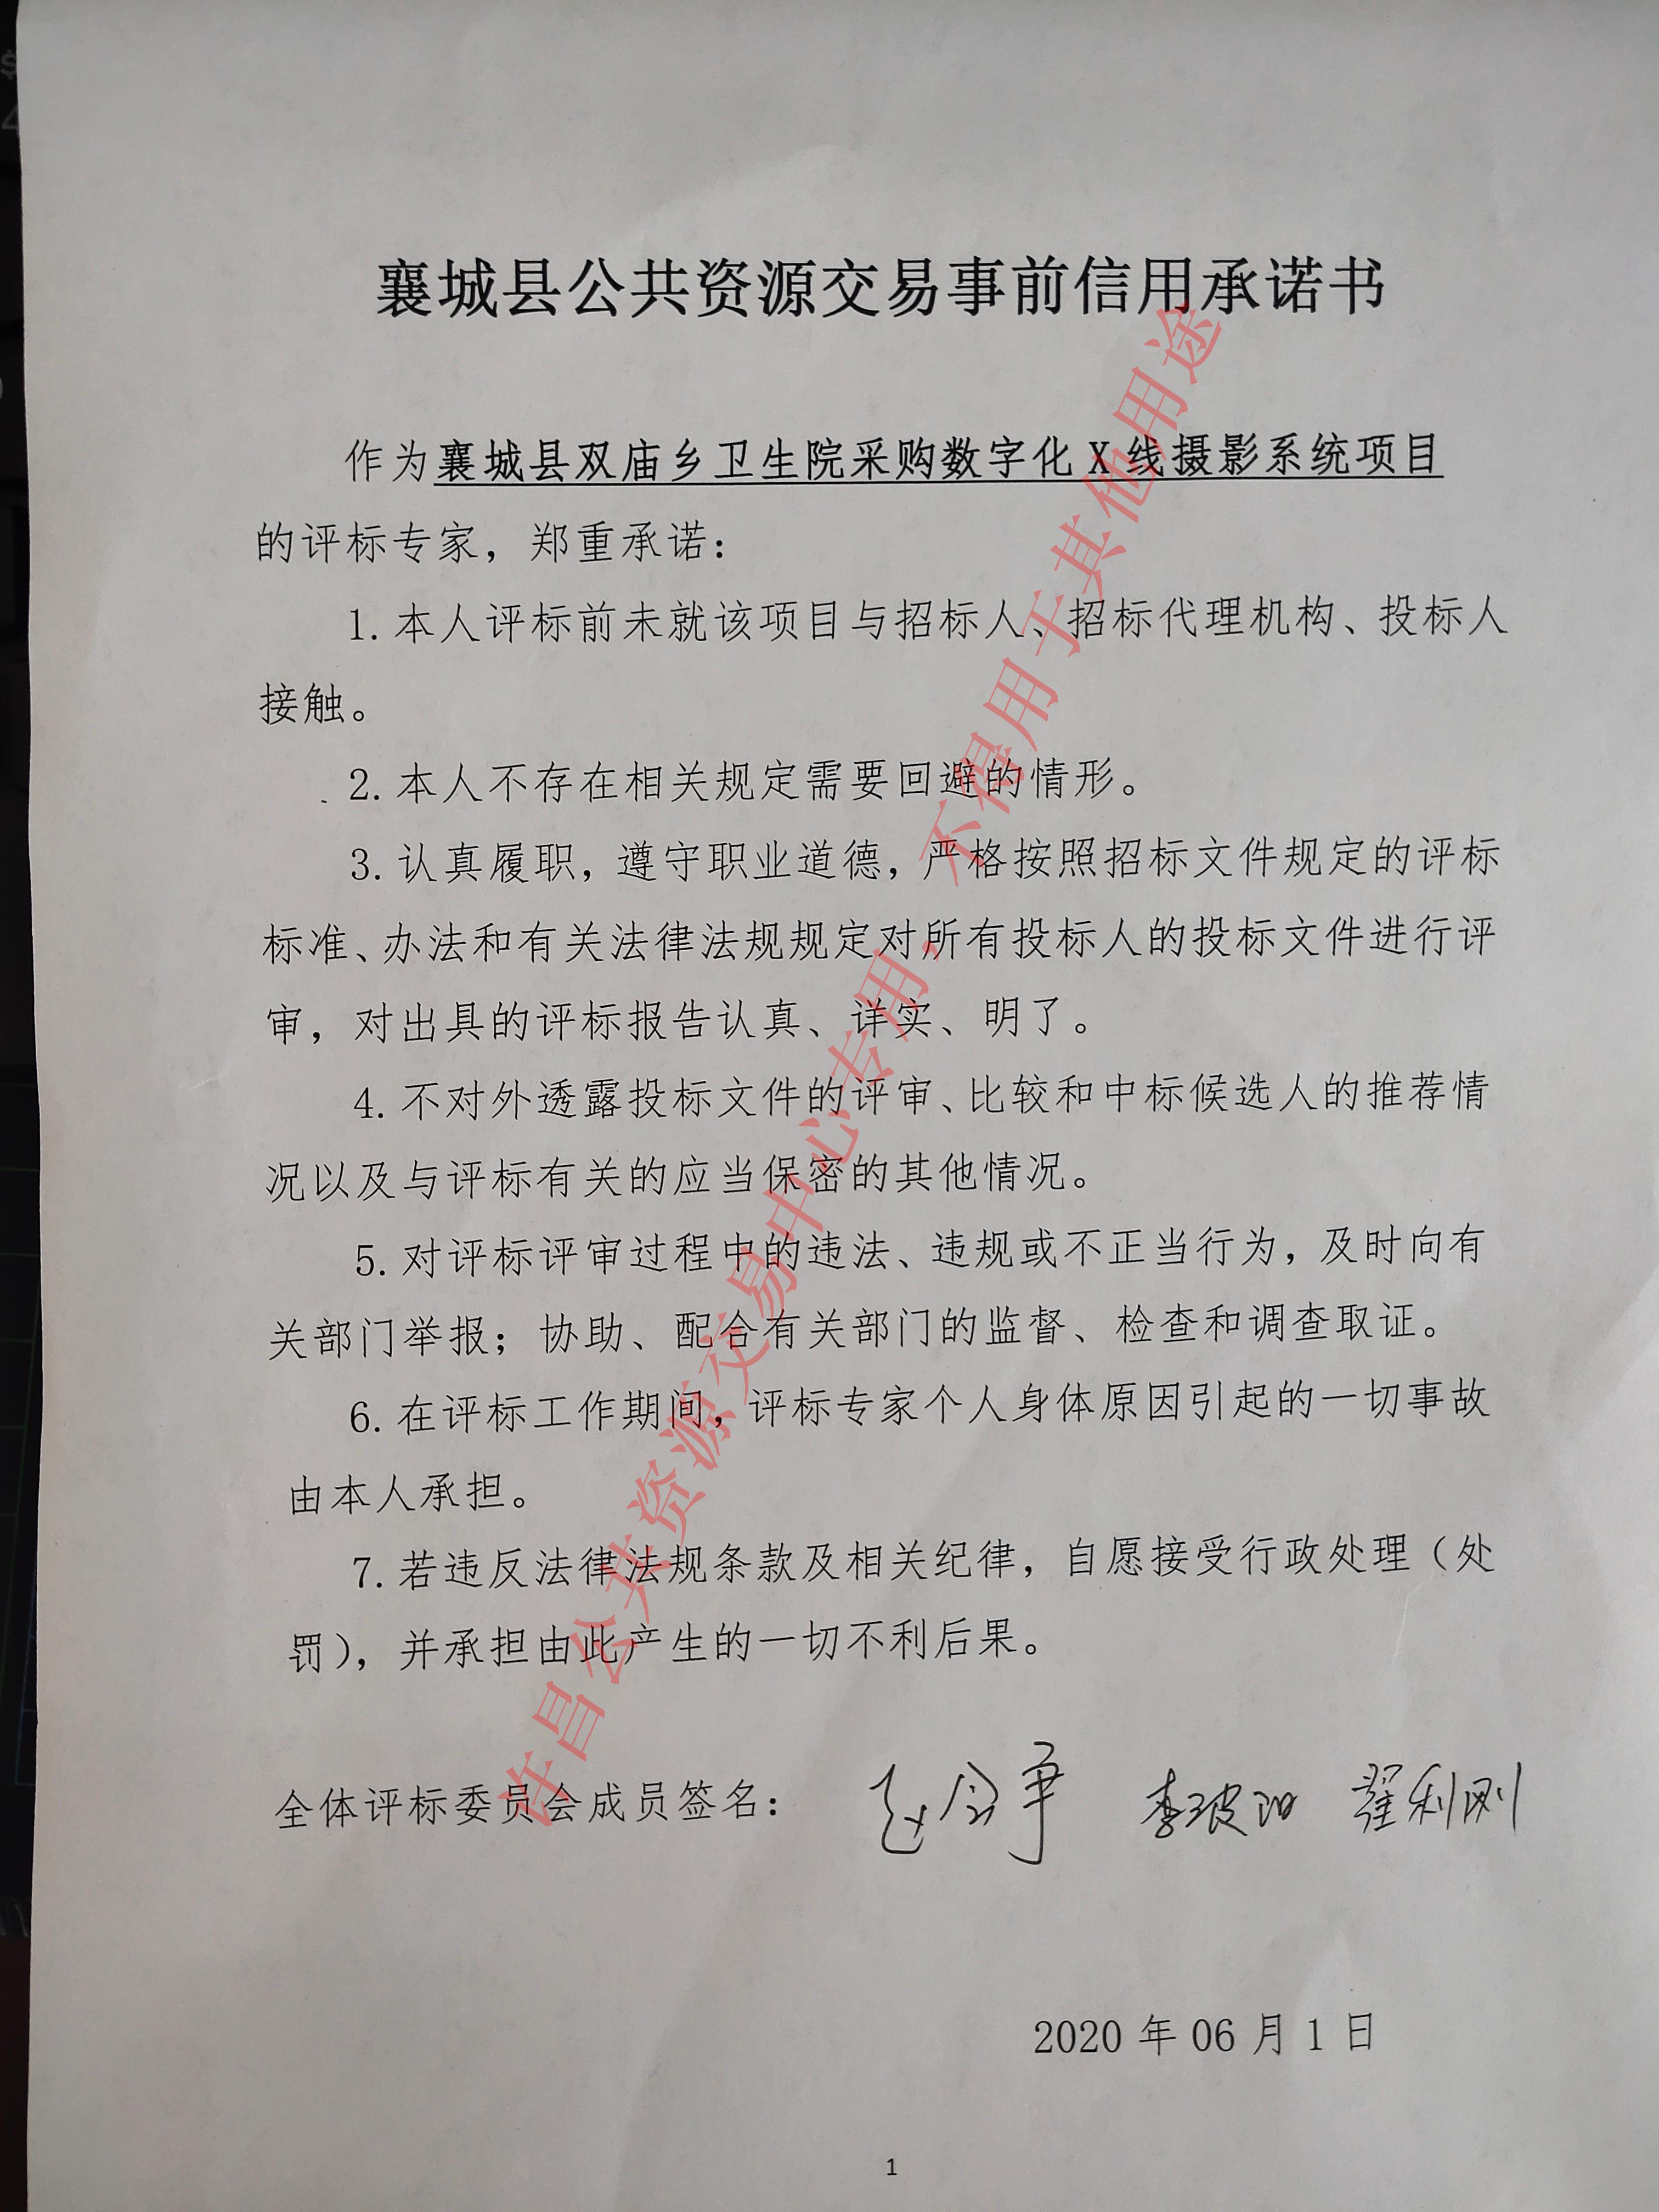 襄城县公共资源交易事前信用承诺书
作为襄城县双庙乡卫生院采购数字化X线摄影系统项目
的评标专家，郑重承诺：
1.本人评标前未就该项目与招标人、招标代理机构、投标人
接触。
2.本人不存在相关规定需要回避的情形。
3.认真履职，遵守职业道德，严格按照招标文件规定的评标
标准、办法和有关法律法规规定对所有投标人的投标文件进行评
审，对出具的评标报告认真、详实、明了。
4.不对外透露投标文件的评审、比较和中标候选人的推荐情
况以及与评标有关的应当保密的其他情况。
5.对评标评审过程中的违法、违规或不正当行为，及时向有
关部门举报；协助、配合有关部门的监督、检查和调查取证。
6.在评标工作期间，评标专家个人身体原因引起的一切事故
由本人承担。
7.若违反法律法规条款及相关纪律，自愿接受行政处理（处
罚），并承担由此产生的一切不利后果。
全体评标委员会成员签名： 翟利刚
2020 年 06 月 1 日
1
许昌公共资源交易中心专用，不得用于其他用途